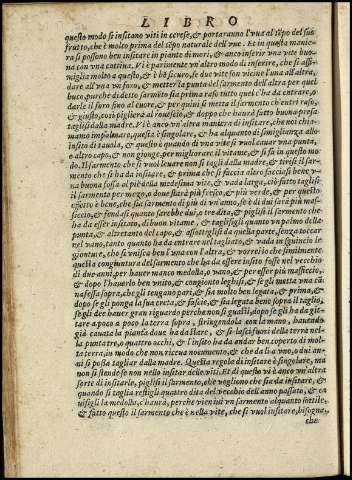 LIBRO
questo modo si insitano viti in cerese, & portaranno l'vua al tẽpo del suo
frutto, che è molto prima del tẽpo naturale dell'vue. Et in questa manie-
ra si possono ben insitare in piante di mori, & anco inserir vna vite buo-
na con vna cattiua. Vi è parimente vn'altro modo di inserire, che si assi-
miglia molto a questo, & è bẽ sicuro, se due vite son vicine l'una all'altra,
dare all'vna vn foro, & metter la punta del sarmento dell'altra per quel
buco, purche di detto sarmẽto sia prima raso tutto quel c'ha da entrare, o
darle il furo sino al cuore, & per quiui si metta il sarmento ch'entri raso,
& giusto, così piglierà al rouescio, & doppo che haurà fatto buona presa
taglisi dalla madre. Vi è anco vn'altra maniera di insitare, che noi chia-
mamo impalmar, questa è singolare, & ha alquanto di simiglianza allo
insito di tauola, & questo è quando di una vite si vuol cauar vna punta,
o altro capo, & non gionge, per migliorare il vitame, & si fa in questo mo-
do. Il sarmento che si vuol leuare non si tagli dalla madre, & tirisi il sar-
mento che si ha da inserire, & prima che si faccia altro facciasi bene v-
na buona fossa al piè della medesima vite, & vada larga, ciò fatto taglisi
il sarmento per mezo, o doue starà più fesso, & più verde, & per questo
effetto è bene, che sia sarmento di più di vn'anno, se è di dui sarà più mas-
siccio, & fendasi quanto sarebbe dui, o tre dita, & piglisi il sarmento che
ha da esser insitato, di buon vitame, & taglisegli quanto vn palmo della
ponta, & altretanto del capo, & assottiglisi da quella parte, senza toccar
nel vano, tanto quanto ha da entrare nel tagliato, & vada in sguincio le
gionture, che si vnisca ben l'una con l'altra, & vorrei io che similmente
quella congiuntura del sarmento che ha da essere insito fosse nel vecchio
di due anni, per hauer manco medolla, o vano, & per esser più massiccio,
& dopo l'hauerlo ben vnito, & congionto leghisi, & se gli metta vna cã-
na fessa sopra, che gli tengano pari, & sia molto ben legata, & prima, &
dopo se gli ponga la sua creta, & fascie, & sia legata bene sopra il taglio,
se gli dee hauer gran riguardo perche non si guasti, dopo se gli ha da git-
tare a poco a poco la terra supra, stringendola con la mano, hauendo
già cauata la pianta doue ha da stare, & si lasci fuori della terra nel-
la punta tre, o quattro occhi, & l'insito ha da andar ben coperto di mol-
ta terra, in modo che non riceua nocumento, & che da lì a vno, o dui an-
ni si possa tagliar dalla madre. Questa regola di insitare è singolare, ma
non si stende se non nello insitar delle viti. Et di questo vi è anco vn'altra
sorte di insitarle, piglisi il sarmento, che vogliono che sia da insitare, &
quando si taglia restigli quattro dita del vecchio dell'anno passato, & ca
uisegli la medolla, c'haurà, perche vien iui vn sarmento alquanto sottile,
& fatto questo il sarmento che è nella vite, che si vuol insitare, bisogna,
che